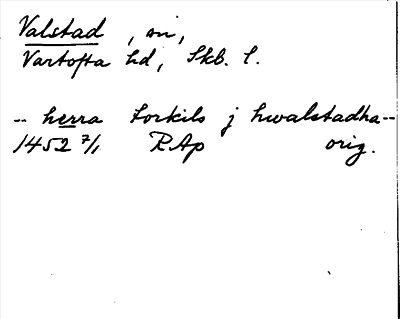 Valstad, sn,
Vartofta hd, Skb. l.
-- herra torkils j hwalstadha --
1452 7/1 RAp orig.